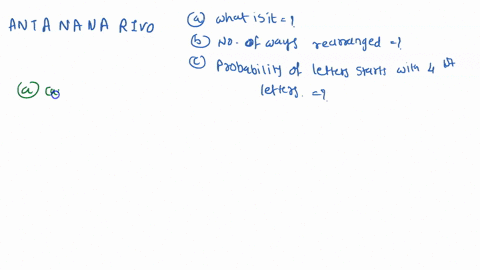 ANTANANARIVO
(a) what is it =?
(b) No. of ways rearranged =?
(c) Probability of letters starts with 4 A
letters. =?
(a)